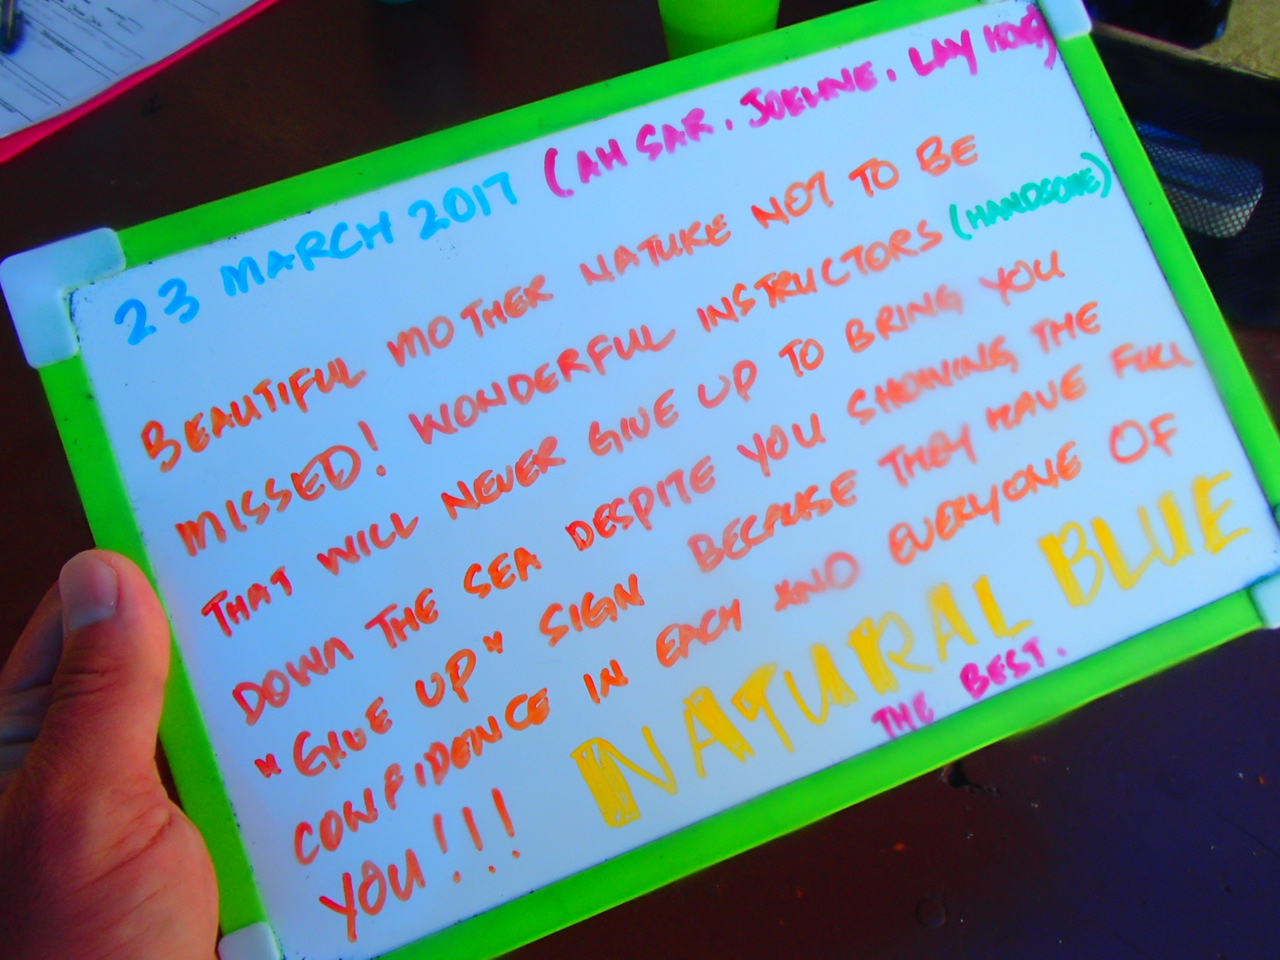 23 MARCH 2017 (AH SAR. JOELINE. LAY HONG)
BEAUTIFUL MOTHER NATURE NOT TO BE
MISSED! WONDERFUL INSTRUCTORS (HANDSOME)
THAT WILL NEVER GIVE UP TO BRING YOU
DOWN THE SEA DESPITE YOU SHOWING THE
"GIVE UP" SIGN BECAUSE THEY HAVE FULL
CONFIDENCE IN EACH AND EVERYONE OF
YOU!!! NATURAL BLUE
THE BEST.